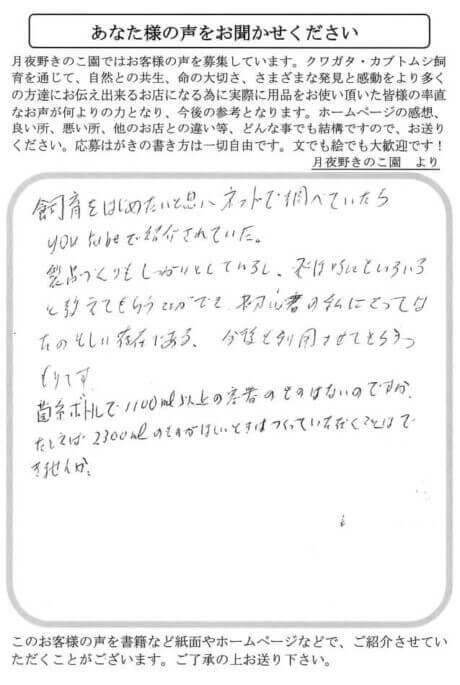 あなた様の声をお聞かせください
月夜野きのこ園ではお客様の声を募集しています。クワガタ・カブトムシ飼
育を通じて、自然との共生、命の大切さ、さまざまな発見と感動をより多く
の方達にお伝え出来るお店になる為に実際に用品をお使い頂いた皆様の率直
なお声が何よりの力となり、今後の参考となります。ホームページの感想、
良い所、悪い所、他のお店との違い等、どんな事でも結構ですので、お送り
ください。応募はがきの書き方は一切自由です。文でも絵でも大歓迎です！
月夜野きのこ園 より
飼育をはじめたいと思い ネットで調べていたら
you tubeで紹介されていた。
製品づくりもしっかりとしているし、 いろいろ
と教えてもらう事ができ 初心者の私にとっては
たのもしい存在である、 今後も利用させてもらうつ
もりです
菌糸ボトルで1100ml以上の容器のものはないのですか、
たとえば2300mlのものがほしいときはつくっていただくことはで
きませんか。
このお客様の声を書籍など紙面やホームページなどで、ご紹介させてい
ただくことがございます。ご了承の上お送り下さい。